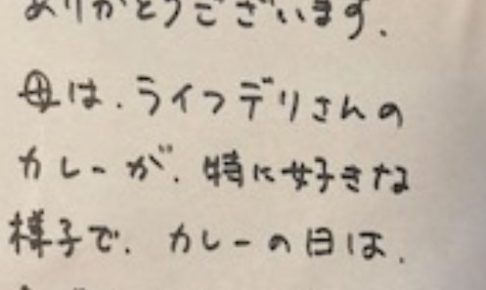 ありがとうございます.
母は.ライフデリさんの
カレーが.特に好きな
様子で.カレーの日は.